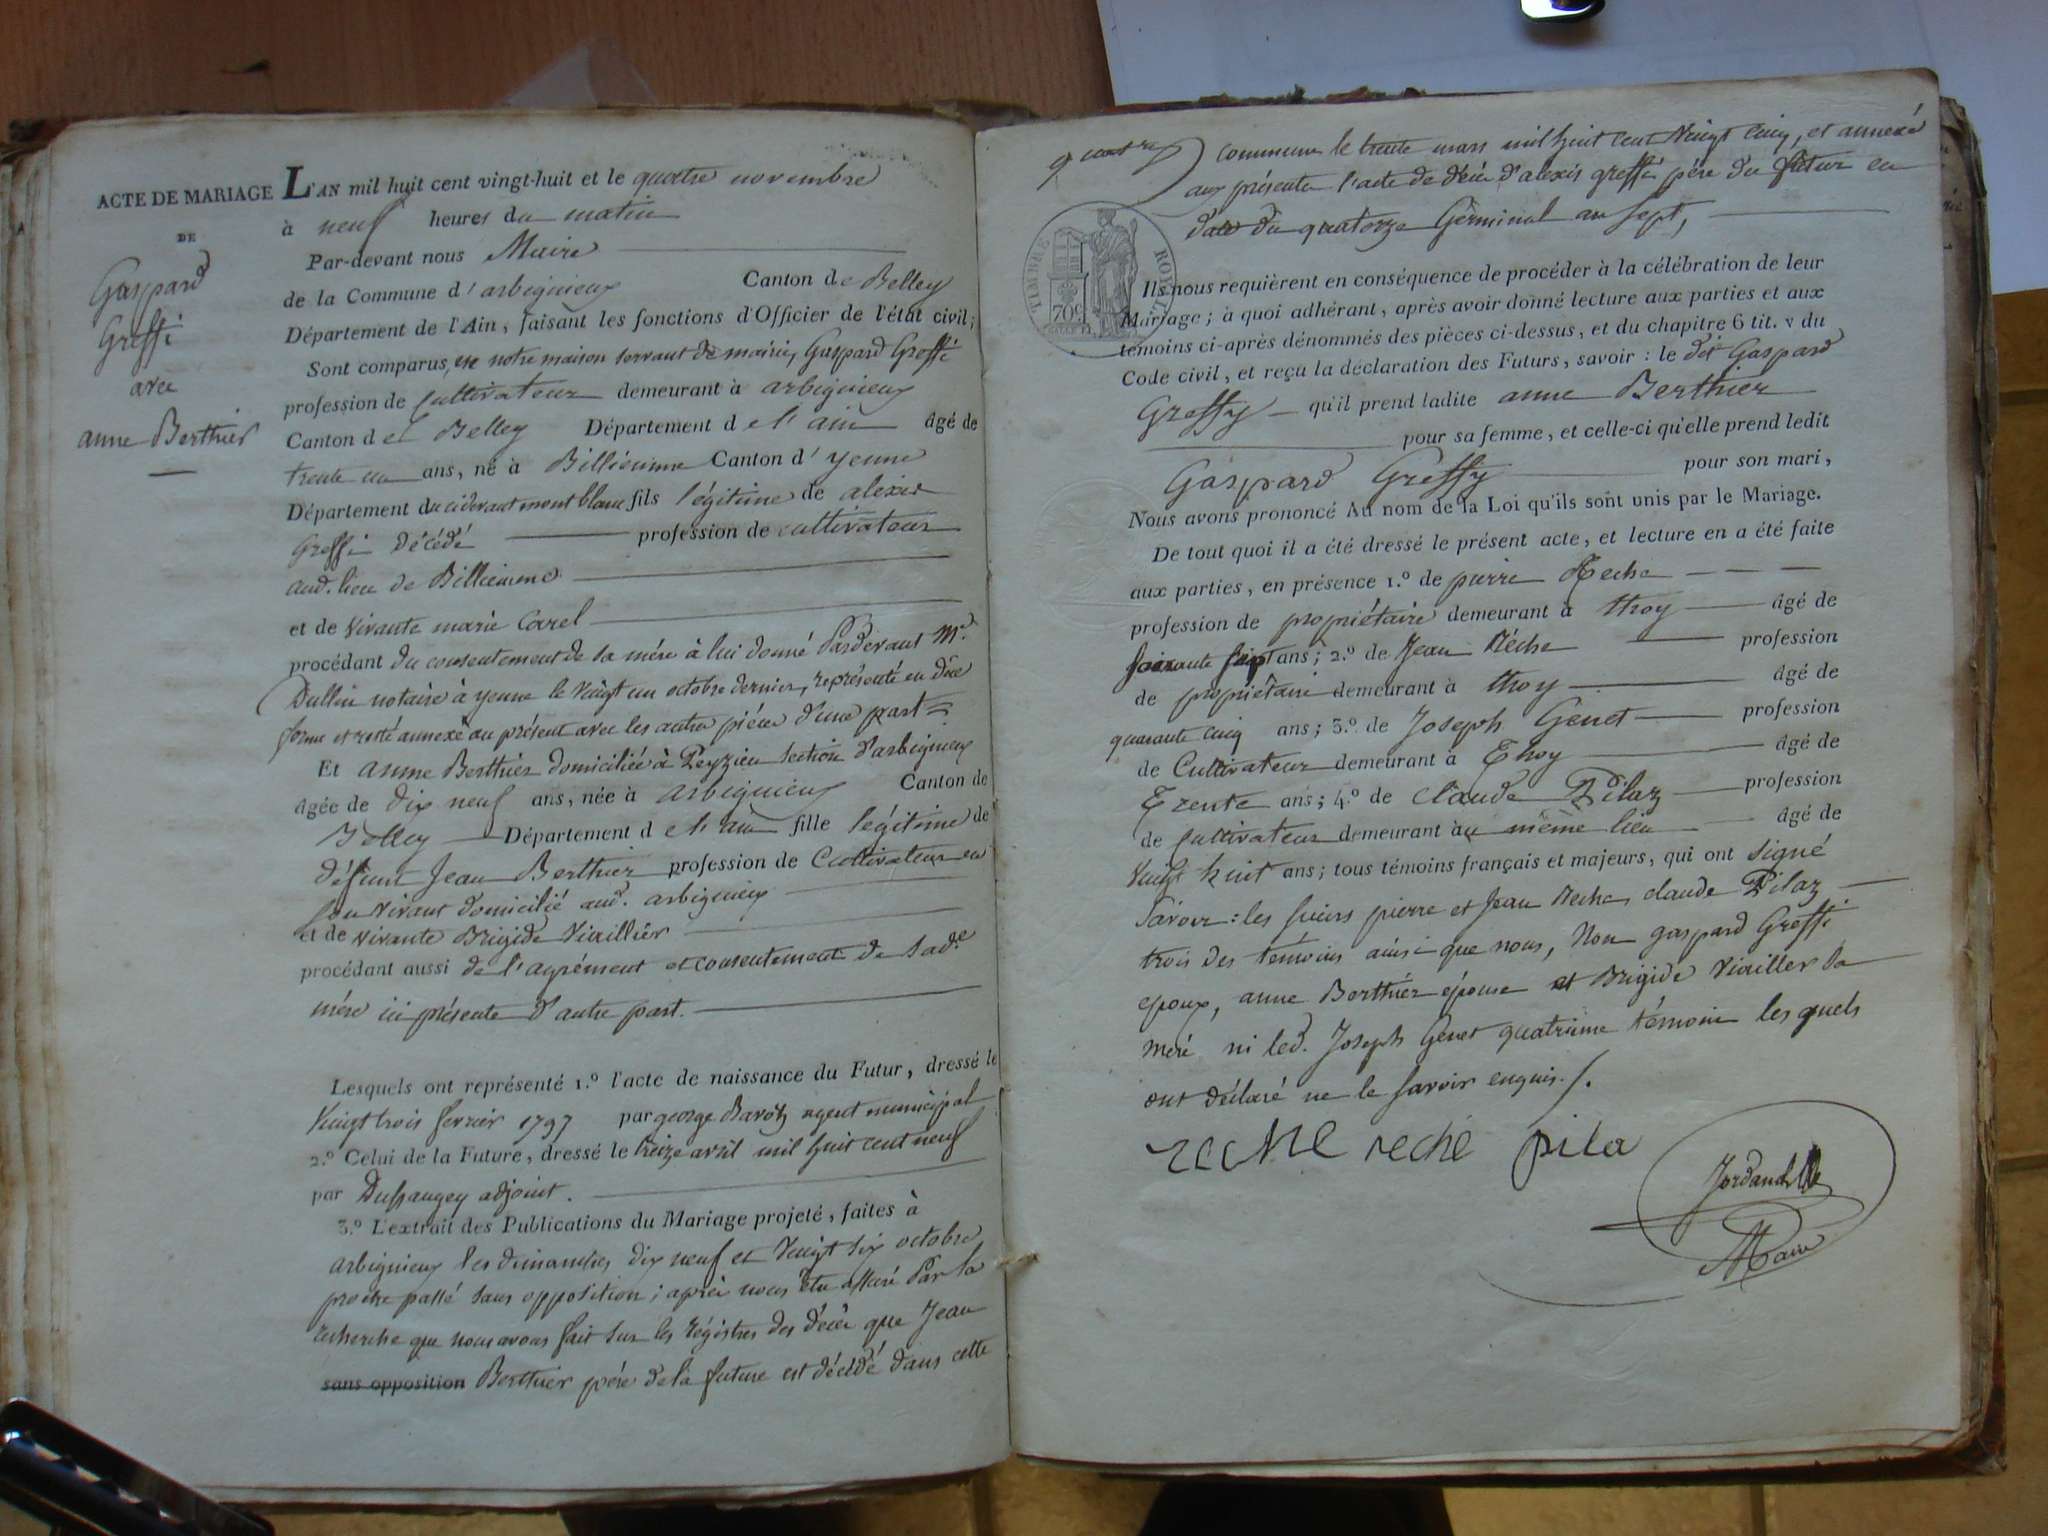 ACTE DE MARIAGE
DE
Gaspard
Greffi
avec
anne Berthier
L'AN mil huit cent vingt-huit et le quatre novembre
à neuf heures du matin
Par-devant nous Maire
de la Commune d'arbignieux Canton de Belley
Département de l'Ain, faisant les fonctions d'Officier de l'état civil;
Sont comparus, en notre maison servant de mairie, Gaspard Greffi
profession de Cultivateur demeurant à arbignieux
Canton de Belley Département de l'ain âgé de
trente un ans, né à Billiemme Canton d'yenne
Département du cidevant mont blanc fils légitime de alexis
Greffi décédé profession de cultivateur
aud. lieu de Billiemme
et de vivante marie Carel
procédant du consentement de sa mére à lui donné Pardevant Me.
Dullin notaire à yenne le vingt un octobre dernier, représenté en due
forme et resté annexé au présent avec les autres piéces d'une part
Et anne Berthier domiciliée à Peyzieu section d'arbignieux
âgée de dix neuf ans, née à arbignieux Canton de
Belley Département de l'ain fille légitime de
défunt Jean Berthier profession de Cultivateur en
son vivant domicilié aud. arbignieux
et de vivante Brigide Viaillier
procédant aussi de l'agrément et consentement de sade.
mére ici présente d'autre part.
Lesquels ont représenté 1.º l'acte de naissance du Futur, dressé le
vingt trois fevrier 1797 par george Baroz agent municipal
2.º Celui de la Future, dressé le treize avril mil huit cent neuf
par Dussaugey adjoint.
3.º L'extrait des Publications du Mariage projeté, faites à
arbignieux les dimanches dix neuf et vingt six octobre
proche passé sans opposition; aprés nous étre assuré Par la
recherche que nous avons fait sur les régistres des décès que Jean
sans opposition Berthier pére de la future est décédé dans cette
quatre
commune le trente mars mil huit cent vingt cinq, et annexé
aux présentes l'acte de décés d'alexis greffi pére du futur en
date du quatorze Gérminal an sept,
TIMBRE ROYAL
70c
Ils nous requièrent en conséquence de procéder à la célébration de leur
Mariage; à quoi adhérant, après avoir donné lecture aux parties et aux
témoins ci-après dénommés des pièces ci-dessus, et du chapitre 6 tit. v du
Code civil, et reçu la déclaration des Futurs, savoir: le dit Gaspard
Greffy qu'il prend ladite anne Berthier
pour sa femme, et celle-ci qu'elle prend ledit
Gaspard Greffy pour son mari,
Nous avons prononcé Au nom de la Loi qu'ils sont unis par le Mariage.
De tout quoi il a été dressé le présent acte, et lecture en a été faite
aux parties, en présence 1.º de pierre Reche
profession de propriétaire demeurant à thoy âgé de
soixante sept ans; 2.º de Jean Réche profession
de propriétaire demeurant à thoy âgé de
quarante cinq ans; 3.º de Joseph Genet profession
de Cultivateur demeurant à Thoy âgé de
Trente ans; 4.º de Claude Pilaz profession
de Cultivateur demeurant au même lieu âgé de
vingt huit ans; tous témoins français et majeurs, qui ont signé
savoir: les sieurs pierre et Jean Reche, claude Pilaz
trois des témoins ainsi que nous, Non gaspard Greffi
epoux, anne Berthier épouse et Brigide Viailler sa
mére ni led. Joseph Genet quatrième témoin lesquels
ont déclaré ne le savoir enquis./.
reche reché pila
Maire